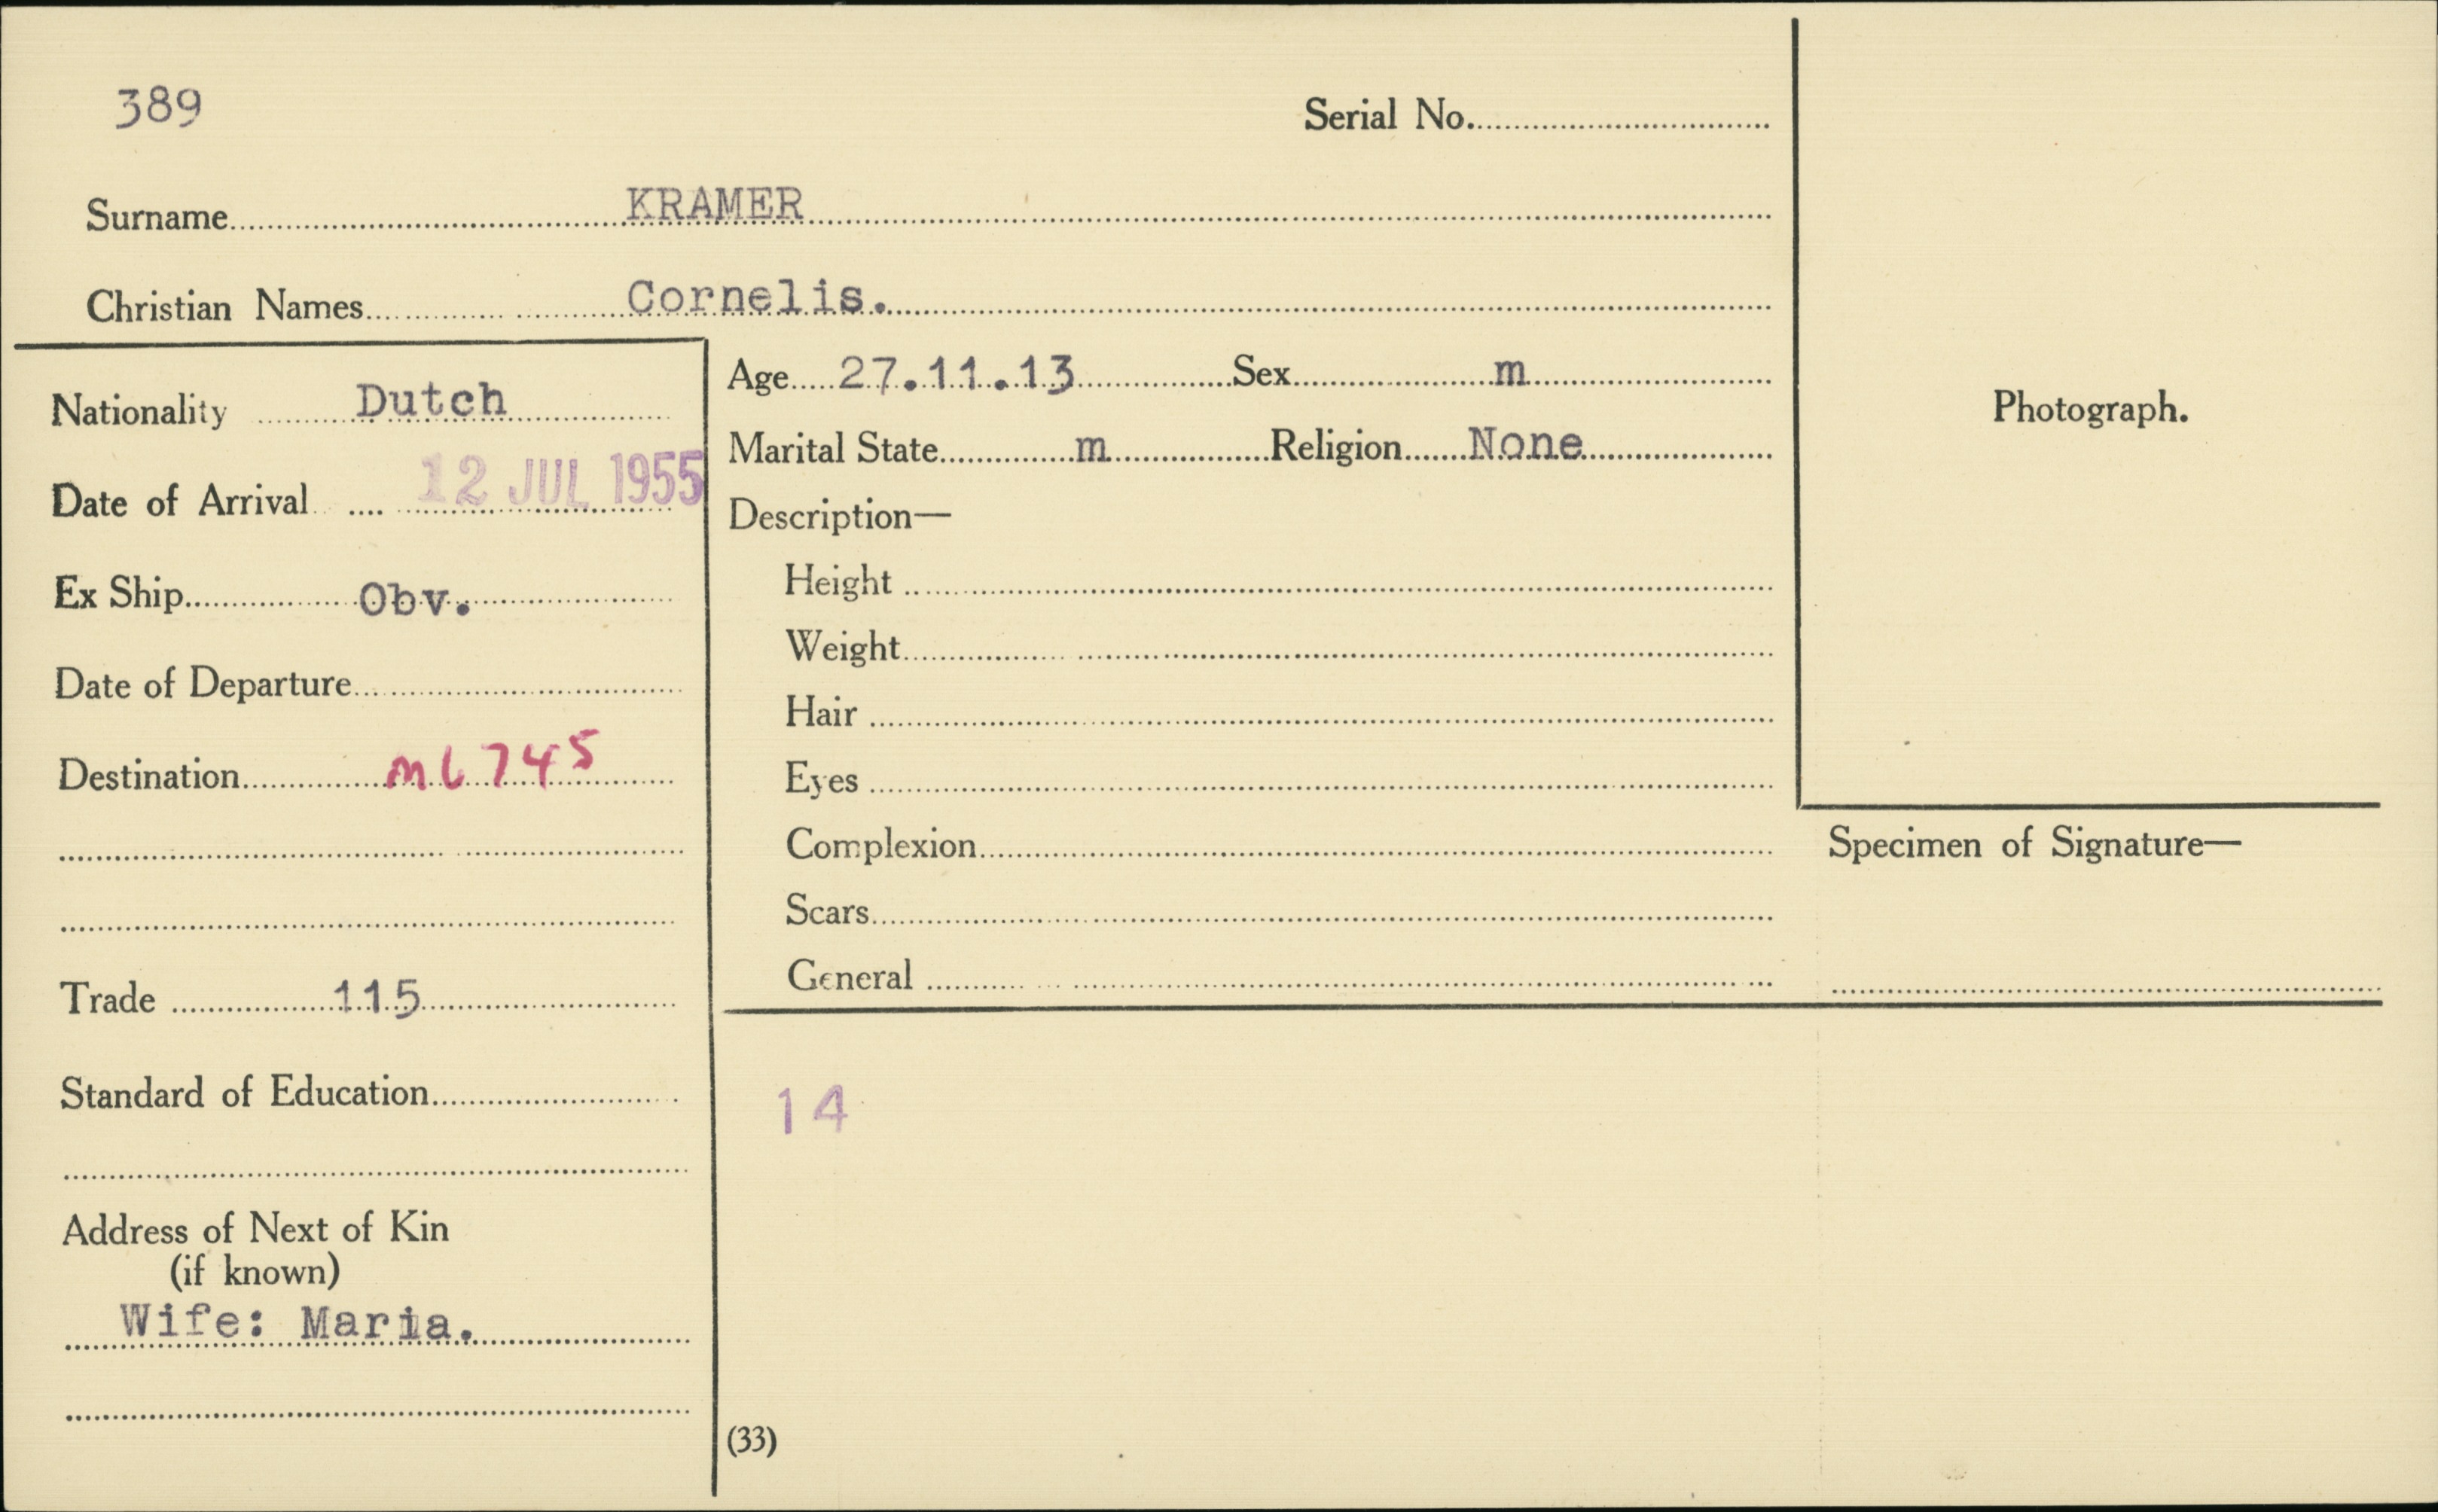 389
Serial No.
Surname KRAMER
Christian Names Cornelis.
Nationality Dutch
Date of Arrival 12 JUL 1955
Ex Ship Obv.
Date of Departure
Destination M6745
Trade 115
Standard of Education
Address of Next of Kin
(if known)
Wife: Maria.
Age 27.11.13 Sex m
Marital State m Religion None
Description—
Height
Weight
Hair
Eyes
Complexion
Scars
General
14
(33)
Photograph.
Specimen of Signature—